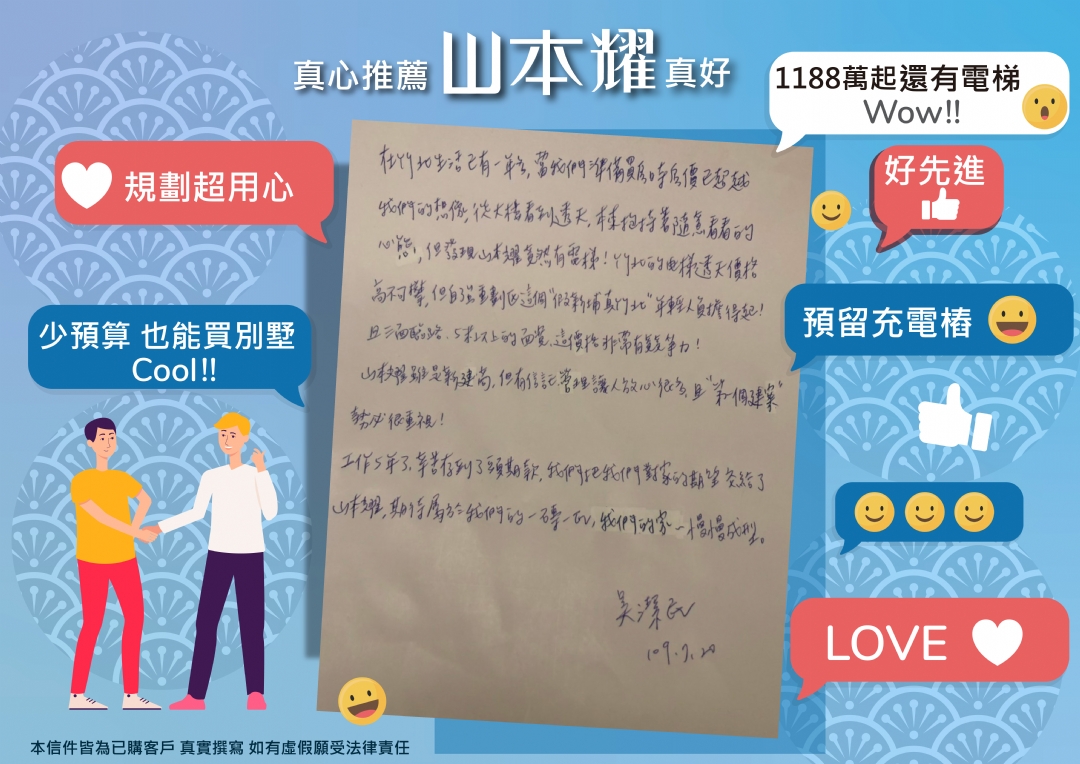 真心推薦 山本耀 真好
1188萬起還有電梯
Wow!!
規劃超用心
好先進
少預算 也能買別墅
Cool!!
預留充電樁
LOVE
在竹北生活已有一年多,當我們準備買房時房價已超越
我們的想像,從大樓看到透天,本抱持著隨意看看的
心態,但發現山本耀竟然有電梯!竹北的電梯透天價格
高不可攀,但自強重劃區這個"假新埔真竹北"年輕人負擔得起!
且三面臨路、5米以上的面寬,這價格非常有競爭力!
山本耀雖是新建商,但有信託管理讓人放心很多,且"第一個建案"
勢必很重視!
工作5年了,辛苦存到了頭期款,我們把我們對家的期望交給了
山本耀,期待屬於我們的一磚一瓦,我們的家~慢慢成型。
吳潔
109.7.20
本信件皆為已購客戶 真實撰寫 如有虛假願受法律責任